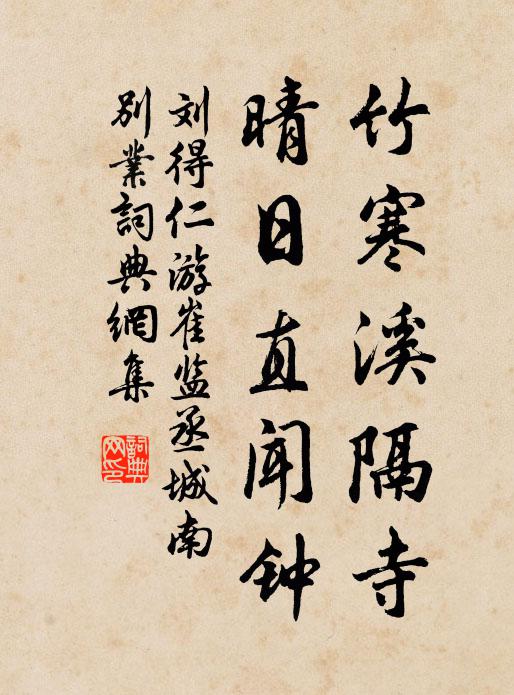 竹寒溪隔寺
晴日直闻钟
刘得仁游崔监丞城南
别業詞典網集
詞典网印